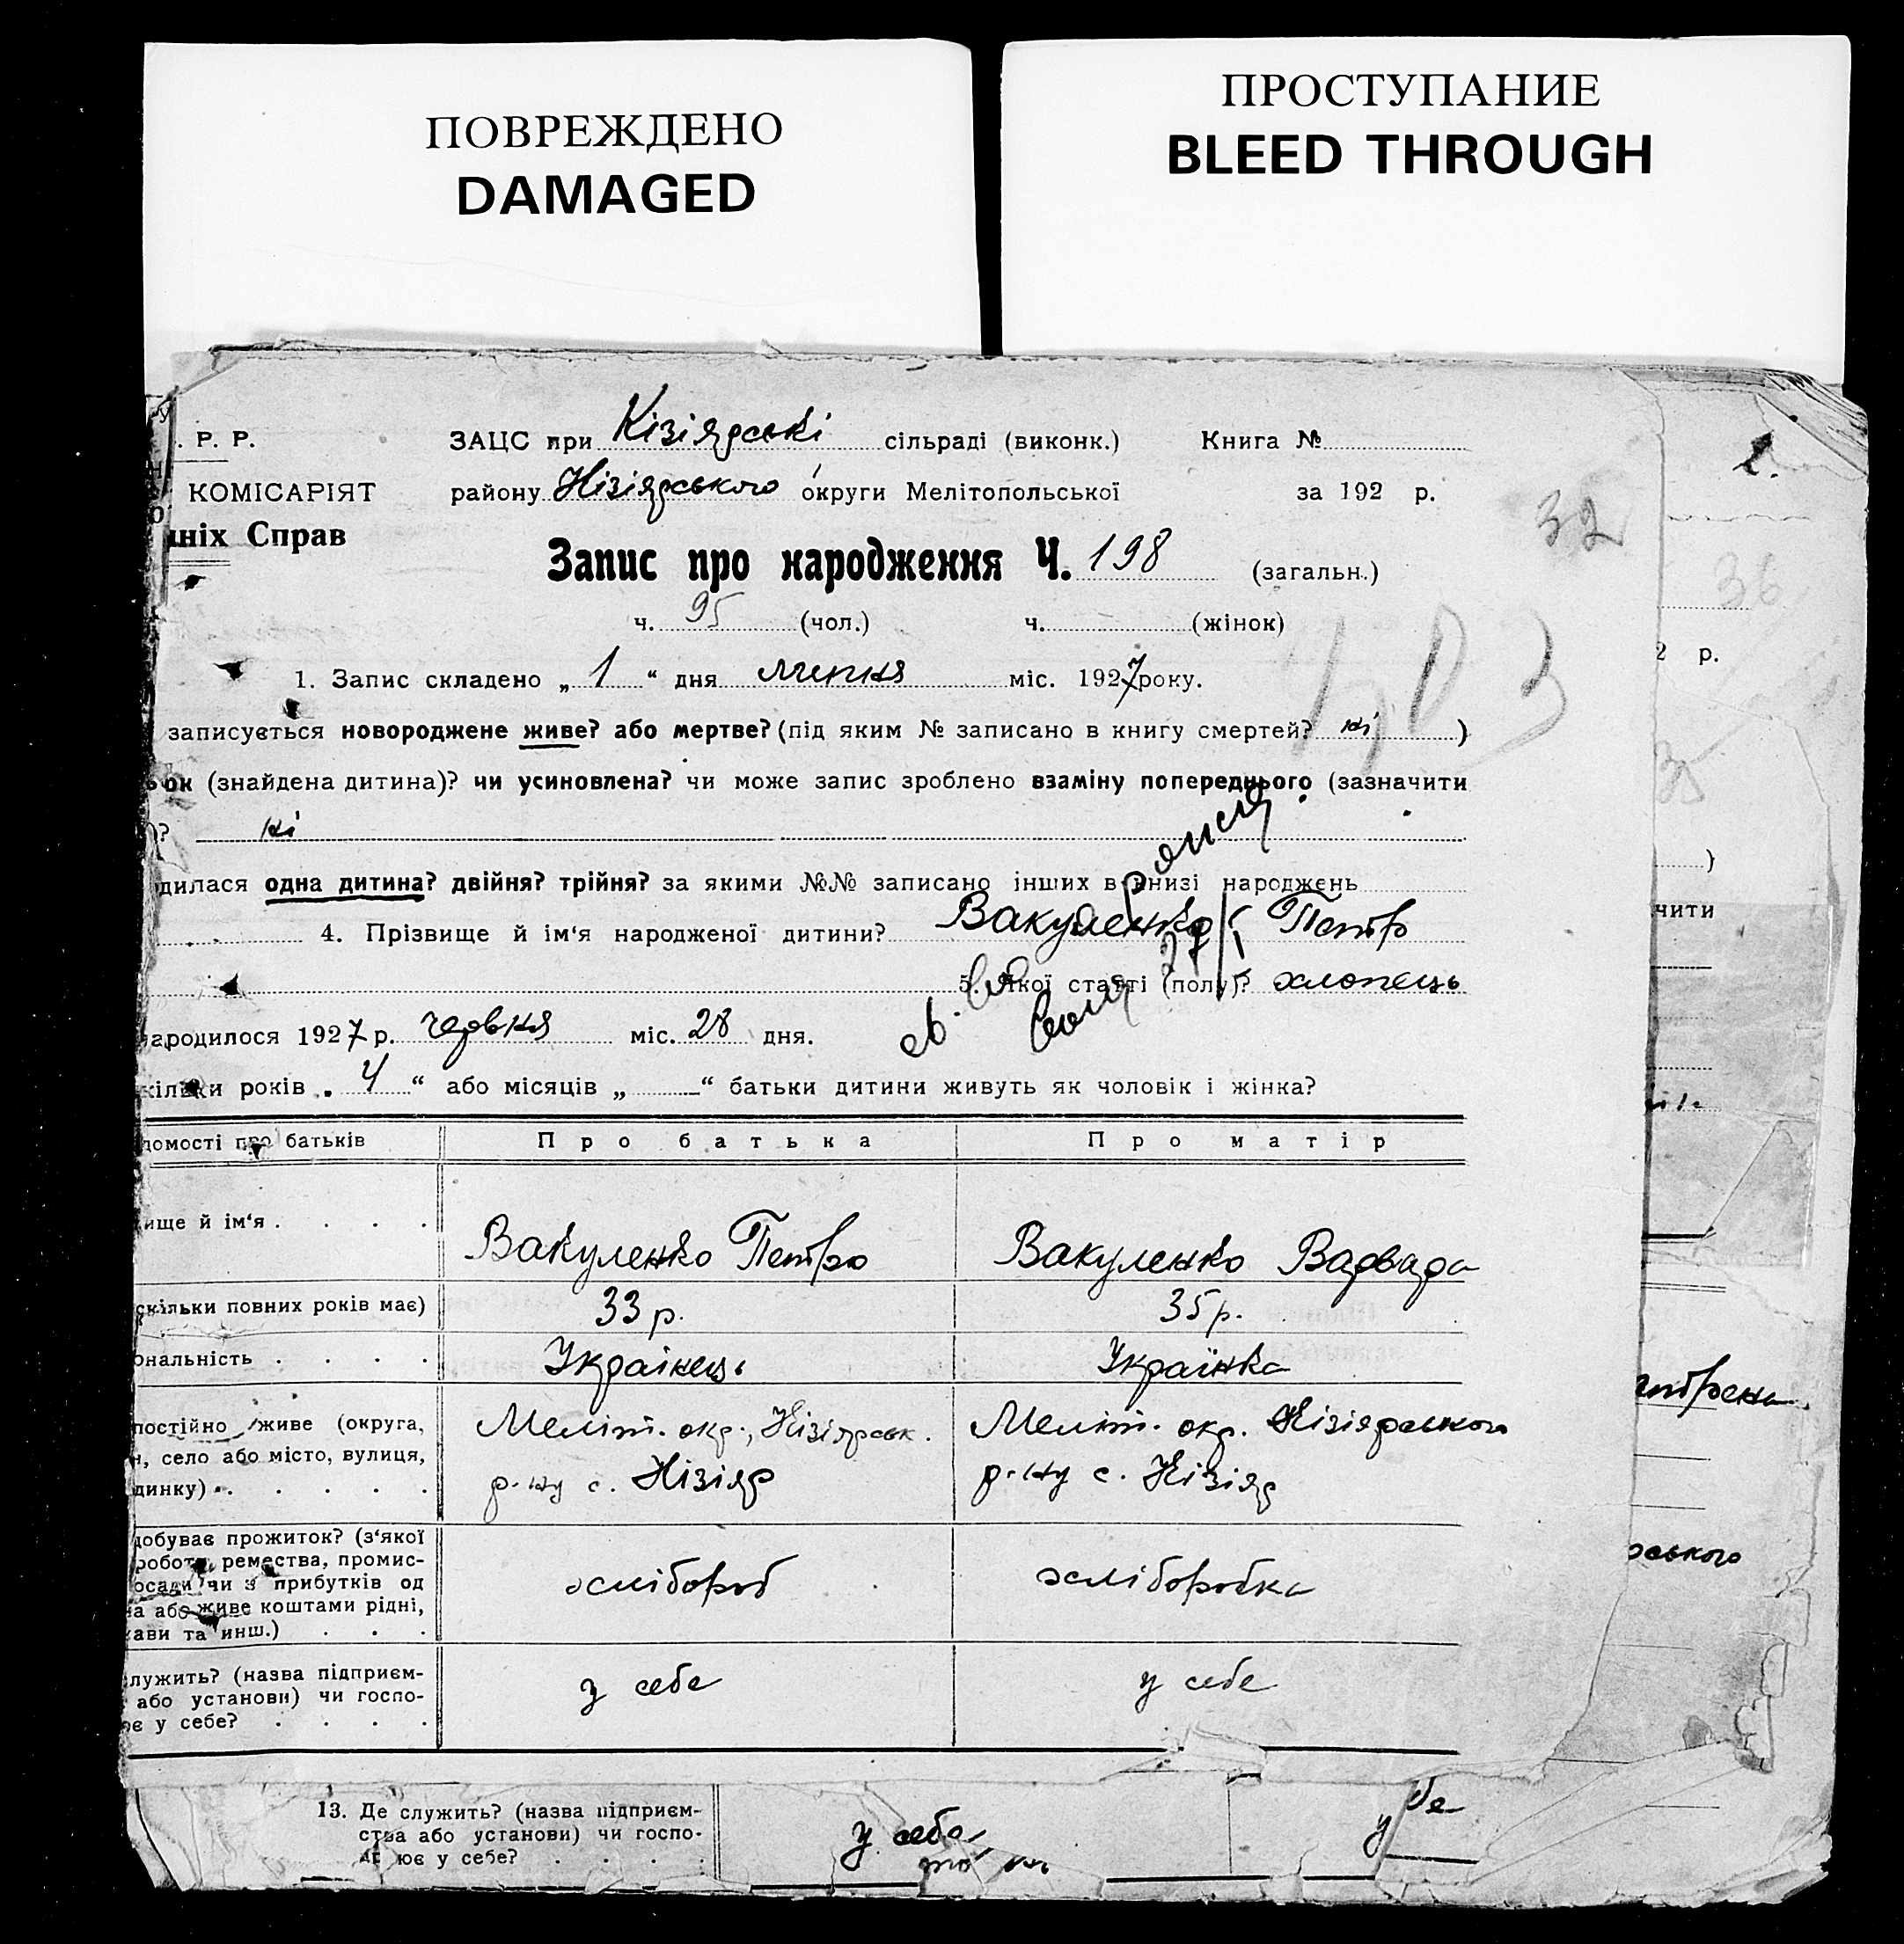 ПОВРЕЖДЕНО
DAMAGED
ПРОСТУПАНИЕ
BLEED THROUGH
. Р. Р.
ЗАЦС при Кізіярські сільраді (виконк.) Книга №
КОМІСАРІЯТ
району Кізіярського округи Мелітопольської за 192 р.
шніх Справ
32
Запис про народження Ч. 198 (загальн.)
36
ч. 95 (чол.) ч. (жінок)
2 р.
1. Запис складено „ 1 “ дня липня міс. 1927 року.
записується новороджене живе? або мертве? (під яким № записано в книгу смертей? ні )
ок (знайдена дитина)? чи усиновлена? чи може запис зроблено взаміну попереднього (зазначити
35
)? ні
)
дилася одна дитина? двійня? трійня? за якими №№ записано інших в книзі народжень
чити
4. Прізвище й ім‘я народженої дитини? Вакуленко Петр
5. Якої статті (полу)? хлопець
народилося 1927 р. червня міс. 28 дня.
кільки років „ 4 “ або місяців „ “ батьки дитини живуть як чоловік і жінка?
домості про батьків Про батька Про матір
ище й ім‘я . . . . Вакуленко Петро Вакуленко Варвара
скільки повних років має) 33 р. 35 р.
ональність . . . . Українець Українка
постійно живе (округа, Меліт. окр., Кізіярськ. Меліт. окр. Кізіярського
, село або місто, вулиця, р-ну с. Кізіяр р-ну с. Кізіяр
динку) . . . . .
добуває прожиток? (з‘якої
роботи, ремества, промис-
осади чи з прибутків од хлібороб хліборобка
на або живе коштами рідні,
ави та инш.) . . .
ського
лужить? (назва підприєм- з себе у себе
або установи) чи госпо-
є у себе? . . . .
13. Де служить? (назва підприєм-
ства або установи) чи госпо- у себе
ює у себе? . . . .